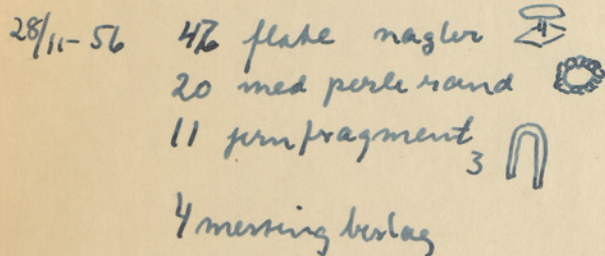 28/11-56 47 flate nagler
20 med perle rand
11 jernfragment
3
4 messing beslag